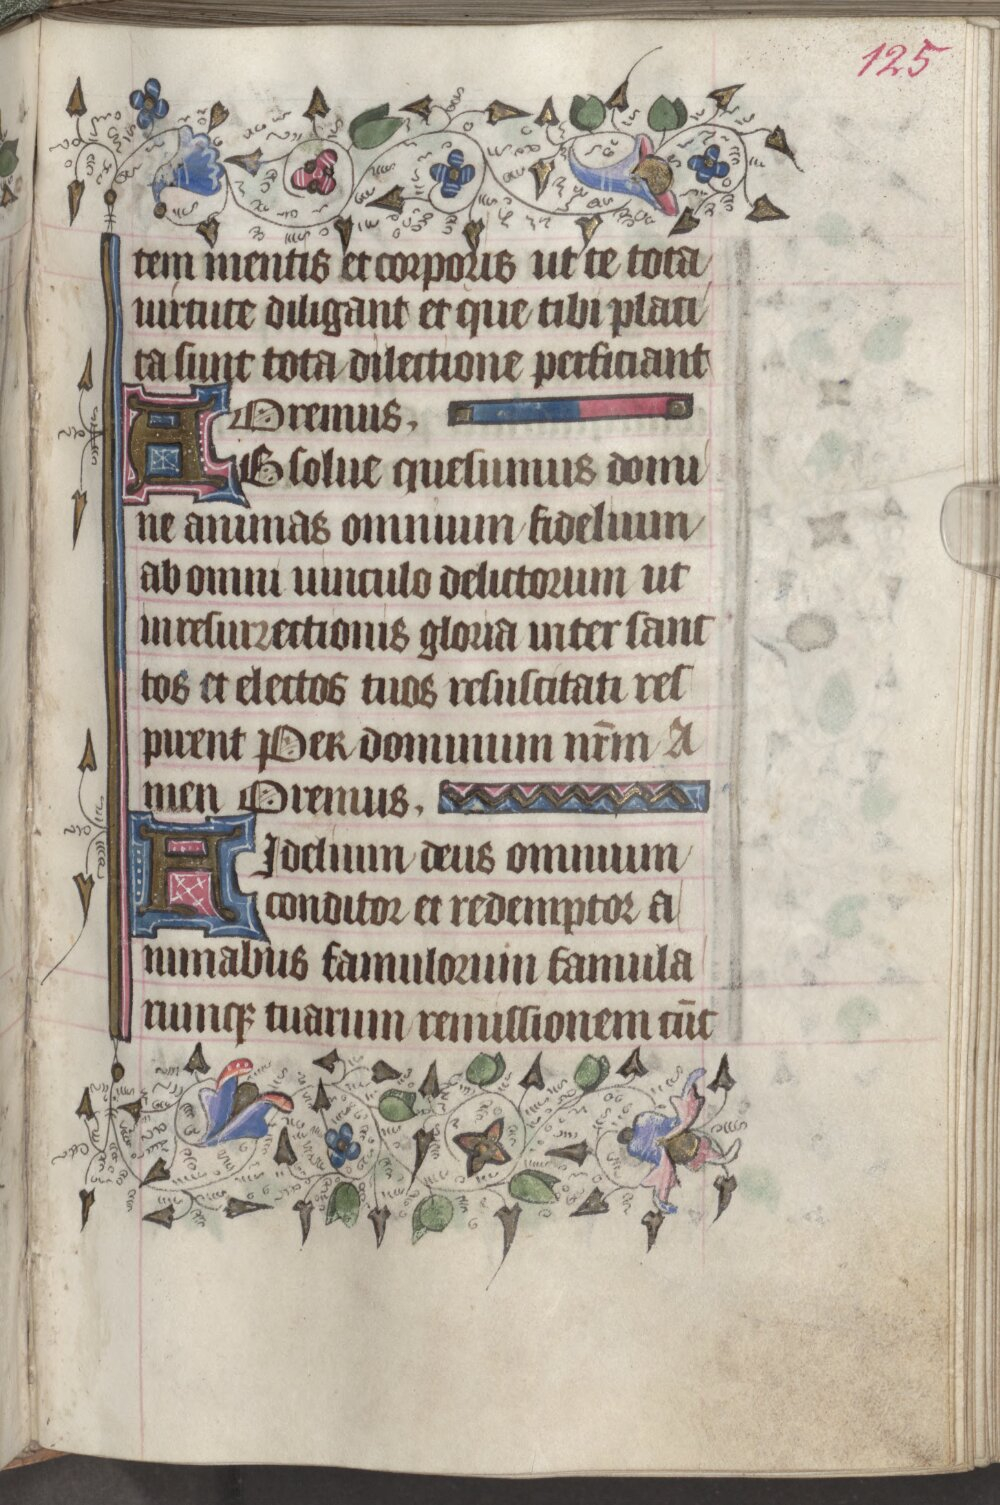 125
tem mentis et corporis ut te tota
uirtute diligant et que tibi placi
ta sunt tota dilectione perficiant
Oremus.
A Bsolue quesumus domi
ne animas omnium fidelium
ab omni uinculo delictorum ut
in resurrectionis gloria inter sanc
tos et electos tuos resuscitati res
pirent Per dominum nr̄m A
men Oremus.
F Idelium deus omnium
conditor et redemptor a
nimabus famulorum famula
rumqꝫ tuarum remissionem cūc